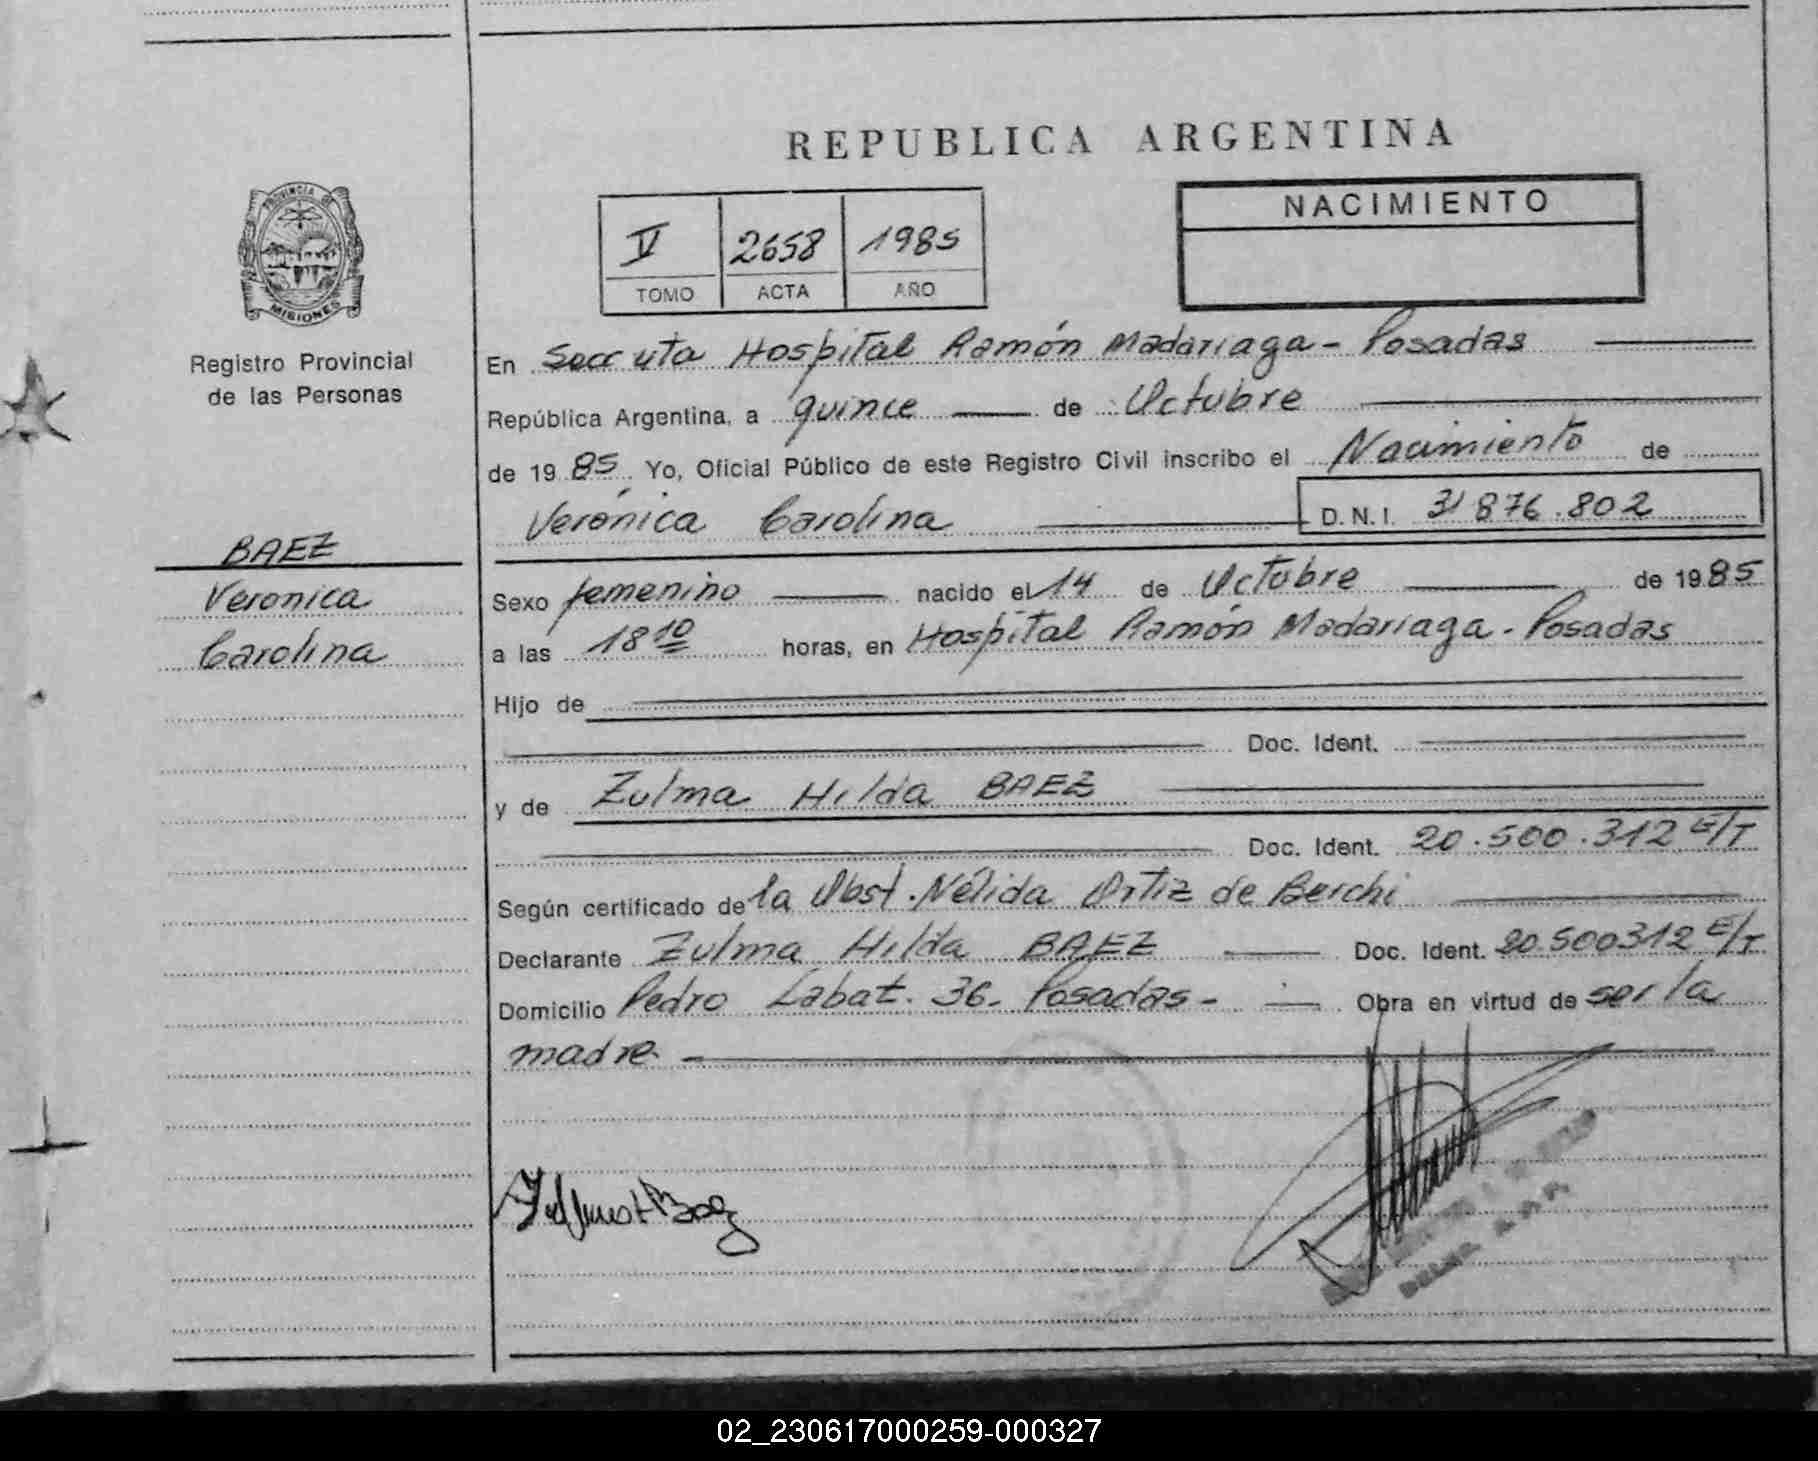 REPUBLICA ARGENTINA
NACIMIENTO
V 2658 1985
TOMO ACTA AÑO
PROVINCIA DE
MISIONES
Registro Provincial
de las Personas
BAEZ
Veronica
Carolina
En Secc uta Hospital Ramón Madariaga - Posadas
República Argentina, a quince de Octubre
de 19 85 Yo, Oficial Público de este Registro Civil inscribo el Nacimiento de
Verónica Carolina D.N.I. 31 876.802
Sexo femenino nacido el 14 de Octubre de 19 85
a las 18 10 horas, en Hospital Ramón Madariaga - Posadas
Hijo de
Doc. Ident.
y de Zulma Hilda BAEZ
Doc. Ident. 20.500.312 E/T
Según certificado de la Obst. Nélida Ortiz de Berchi
Declarante Zulma Hilda BAEZ Doc. Ident. 20.500312 E/T
Domicilio Pedro Labat. 36. Posadas - Obra en virtud de ser la
madre
02_230617000259-000327